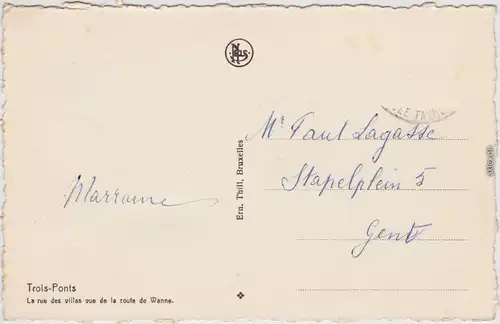 Nels
Mr Paul Lagasse
Stapelplein 5
Gent
Marraine
Ern. Thill, Bruxelles
Trois-Ponts
La rue des villas vue de la route de Wanne.